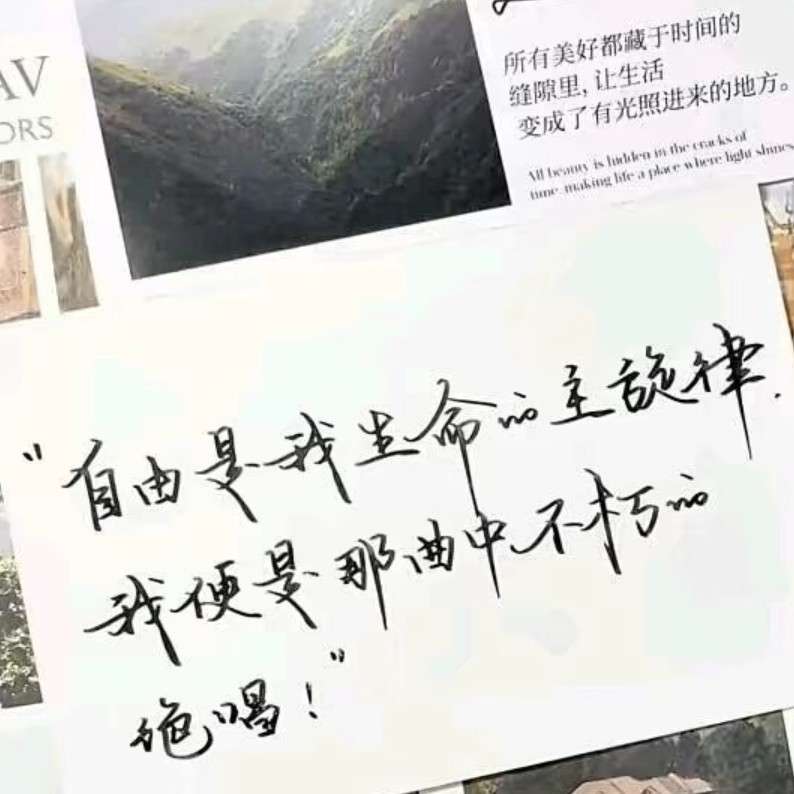 AV
ORS
所有美好都藏于时间的
缝隙里,让生活
变成了有光照进来的地方。
All beauty is hidden in the cracks of
time, making life a place where light shines
“自由是我生命的主旋律.
我便是那曲中不朽的
绝唱!”